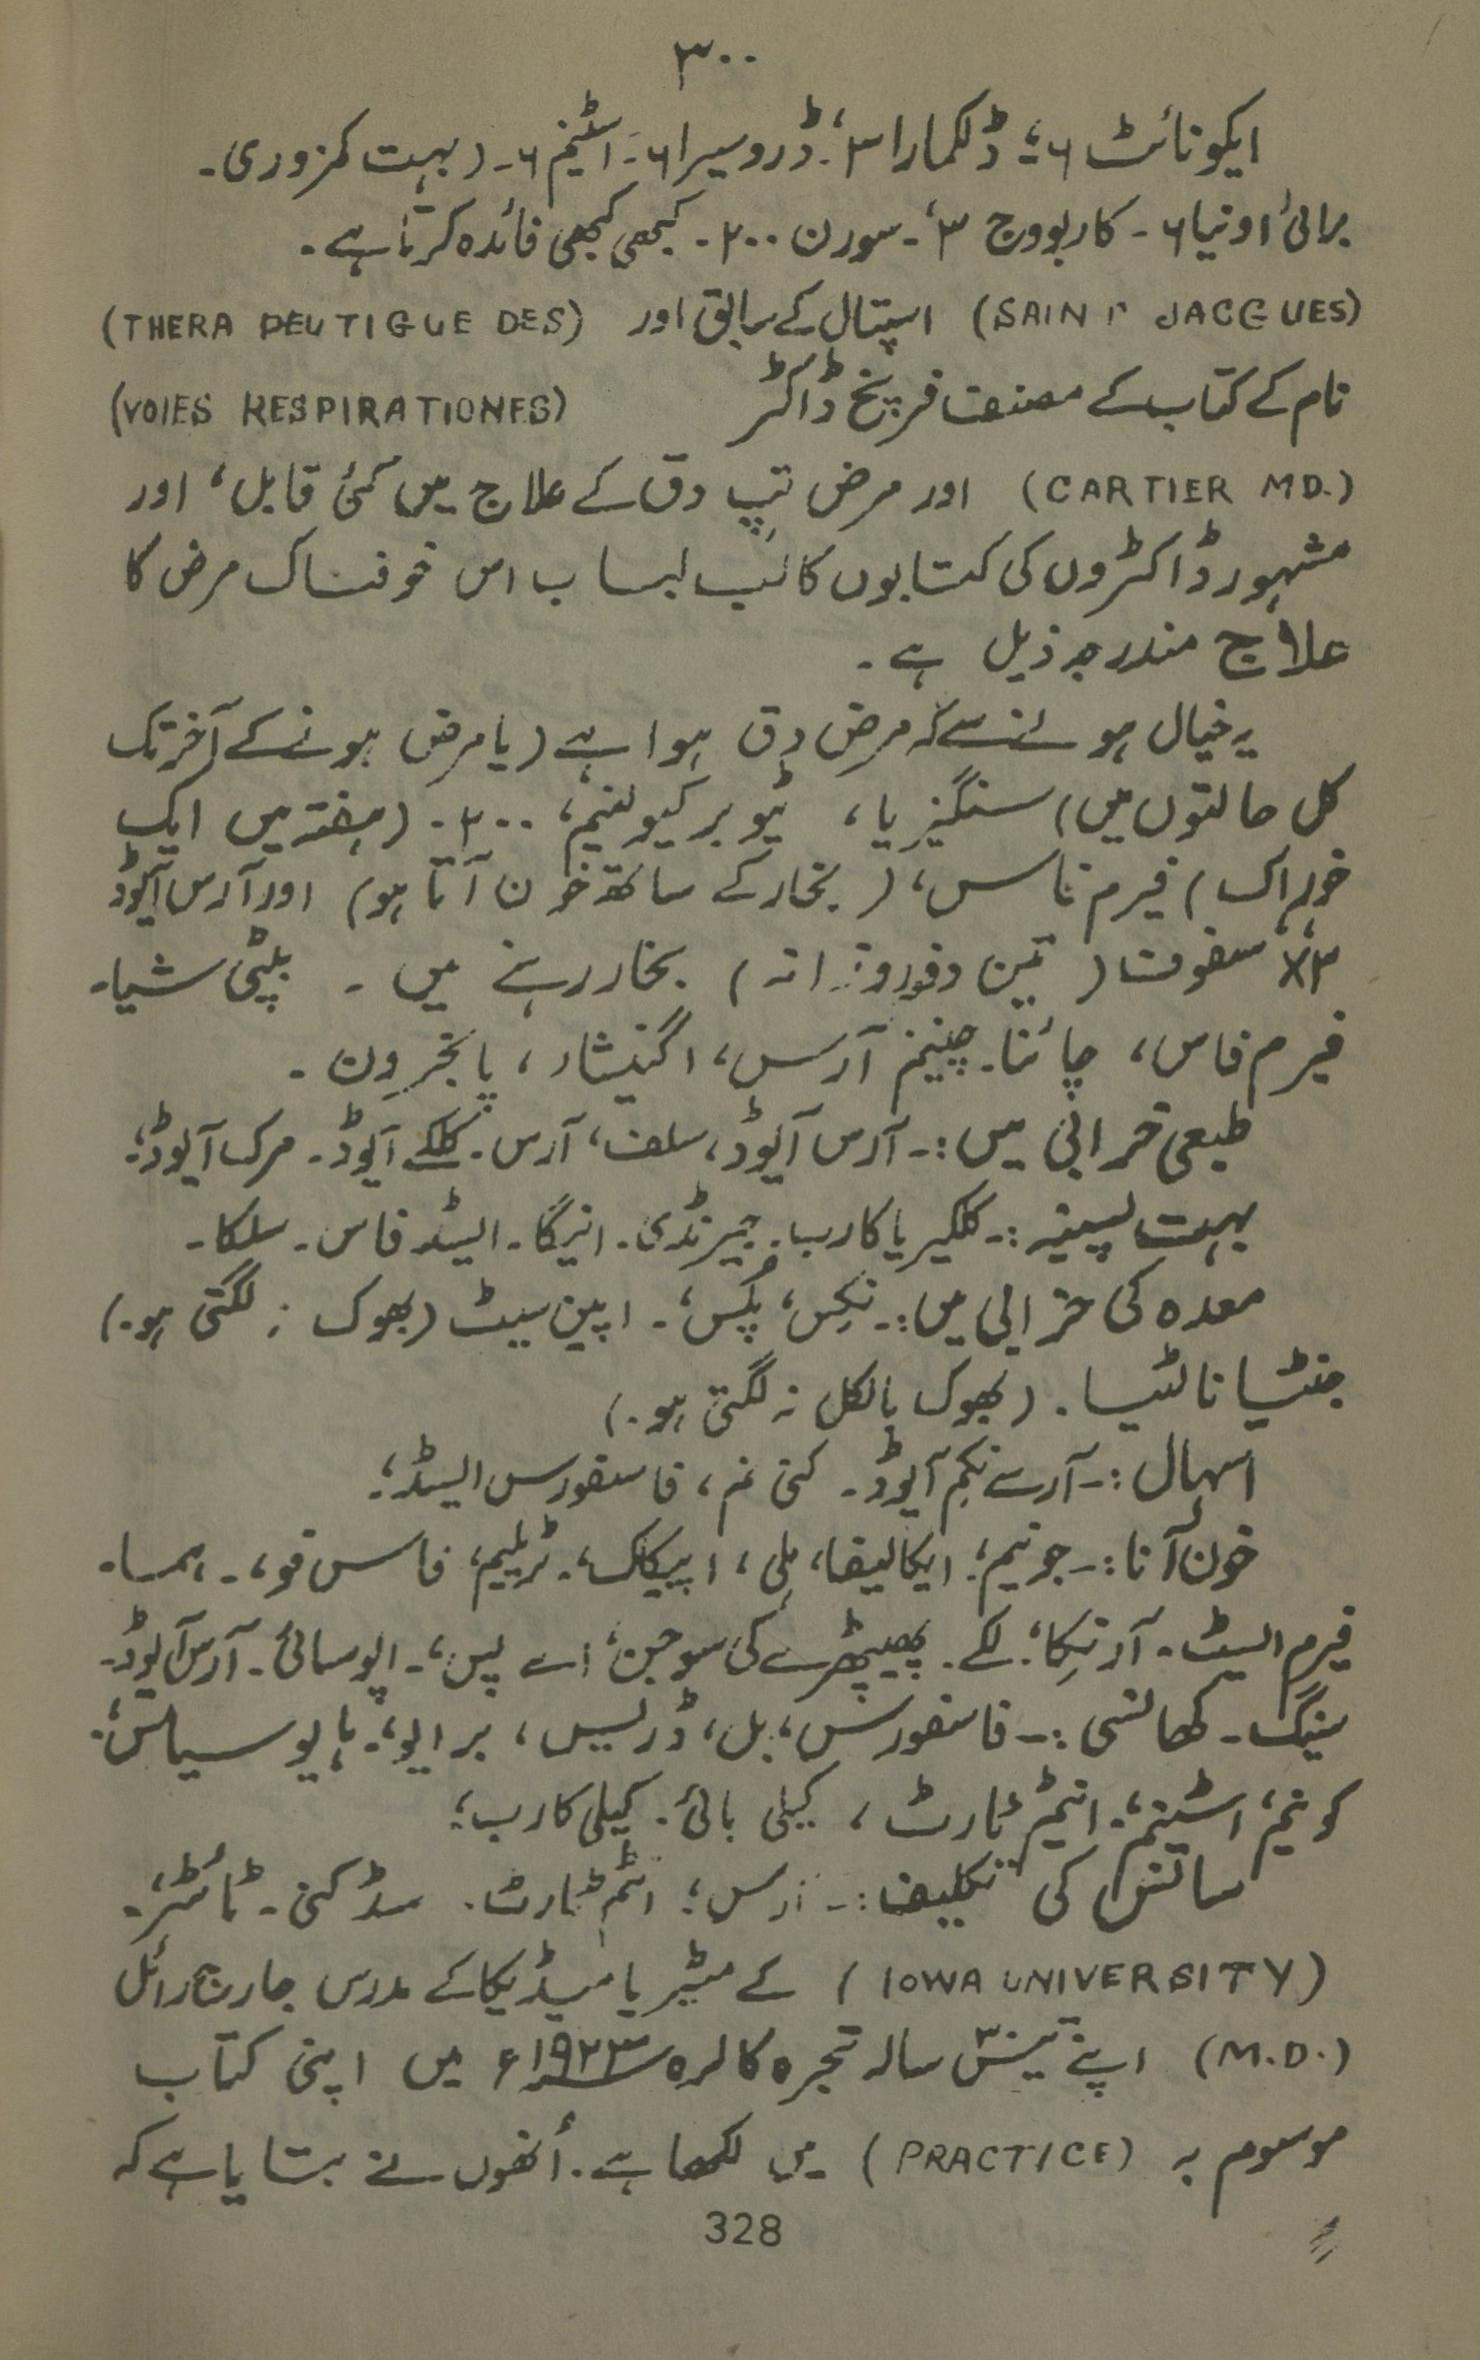 ۳۰۰
ایکونائٹ ۶؛ ڈلکمارا ۳؛ ڈروسیرا ۶۔ اسٹینم ۶۔ (بہت کمزوری۔
برائی اونیا ۶۔ کاربووج ۳، سورن ۲۰۰۔ کبھی کبھی فائدہ کرتا ہے۔
(SAINT JACGUES) اسپتال کے سابق اور (THERA PEUTIGUE DES)
نام کے کتاب کے مصنف فرینچ ڈاکٹر (VOIES RESPIRATIONES)
(CARTIER MD.) اور مرض تپِ دق کے علاج میں کئی قابل، اور
مشہور ڈاکٹروں کی کتابوں کا لب لباب اس خوفناک مرض کا
علاج مندرجہ ذیل ہے۔
یہ خیال ہونے سے کہ مرض دق ہوا ہے (یا مرض ہونے کے آخر تک
کل حالتوں میں) سنگنیریا، ٹیوبرکیولینم، ۲۰۰۔ (ہفتہ میں ایک
خوراک) فیرم فاس، (بخار کے ساتھ خون آتا ہو) اور آرس آیوڈ
۳x سفوف (تین دفعہ روزانہ) بخار رہنے میں۔ بپٹی شیا۔
فیرم فاس، چائنا۔ چینینم آرس، اگنیشاء، پائجرون۔
طبعی خرابی میں:۔ آرس آیوڈ، سلف، آرس۔ کلکے آیوڈ۔ مرک آیوڈ؛
بہت پسینہ:۔ کلکیریا کارب۔ جبرنڈی۔ انیگا۔ ایسڈ فاس۔ سلکا۔
معدہ کی خرابی میں:۔ نکس، پلس،۔ اپین سیٹ (بھوک نہ لگتی ہو۔)
جنٹیا نالٹیا۔ (بھوک بالکل نہ لگتی ہو۔)
اسہال:۔ آرسے نکم آیوڈ۔ کنی نم، فاسفورس ایسڈ؛
خون آنا:۔ جونیم؛ ایکالیفا، ملی، اپیکاک،۔ ٹریلیم، فاس فو،۔ ہمما۔
فیرم ایسٹ۔ آرنیکا؛ لکے۔ پھیپھڑے کی سوجن؛ اے پس،۔ اپوسائی۔ آرس آیوڈ۔
سنیگ۔ کھانسی:۔ فاسفورس، بل، ڈریس، برایو،۔ ہایوسیامس؛
کونیم، اسٹینم،۔ انٹیم ٹارٹ، کیلی بائی۔ کیلی کارب؛
سانس کی تکلیف:۔ ارس؛ انٹم ٹارٹ۔ سڈ کنی۔ ٹائٹر۔
(IOWA UNIVERSITY) کے مٹیریا میڈیکا کے مدرس جارج رائل
(M.D.) اپنے تینتس سالہ تجربہ کا لرہ ۱۹۲۳ء میں اپنی کتاب
موسوم بہ (PRACTICE) میں لکھا ہے۔ اُنھوں نے بتایا ہے کہ
328